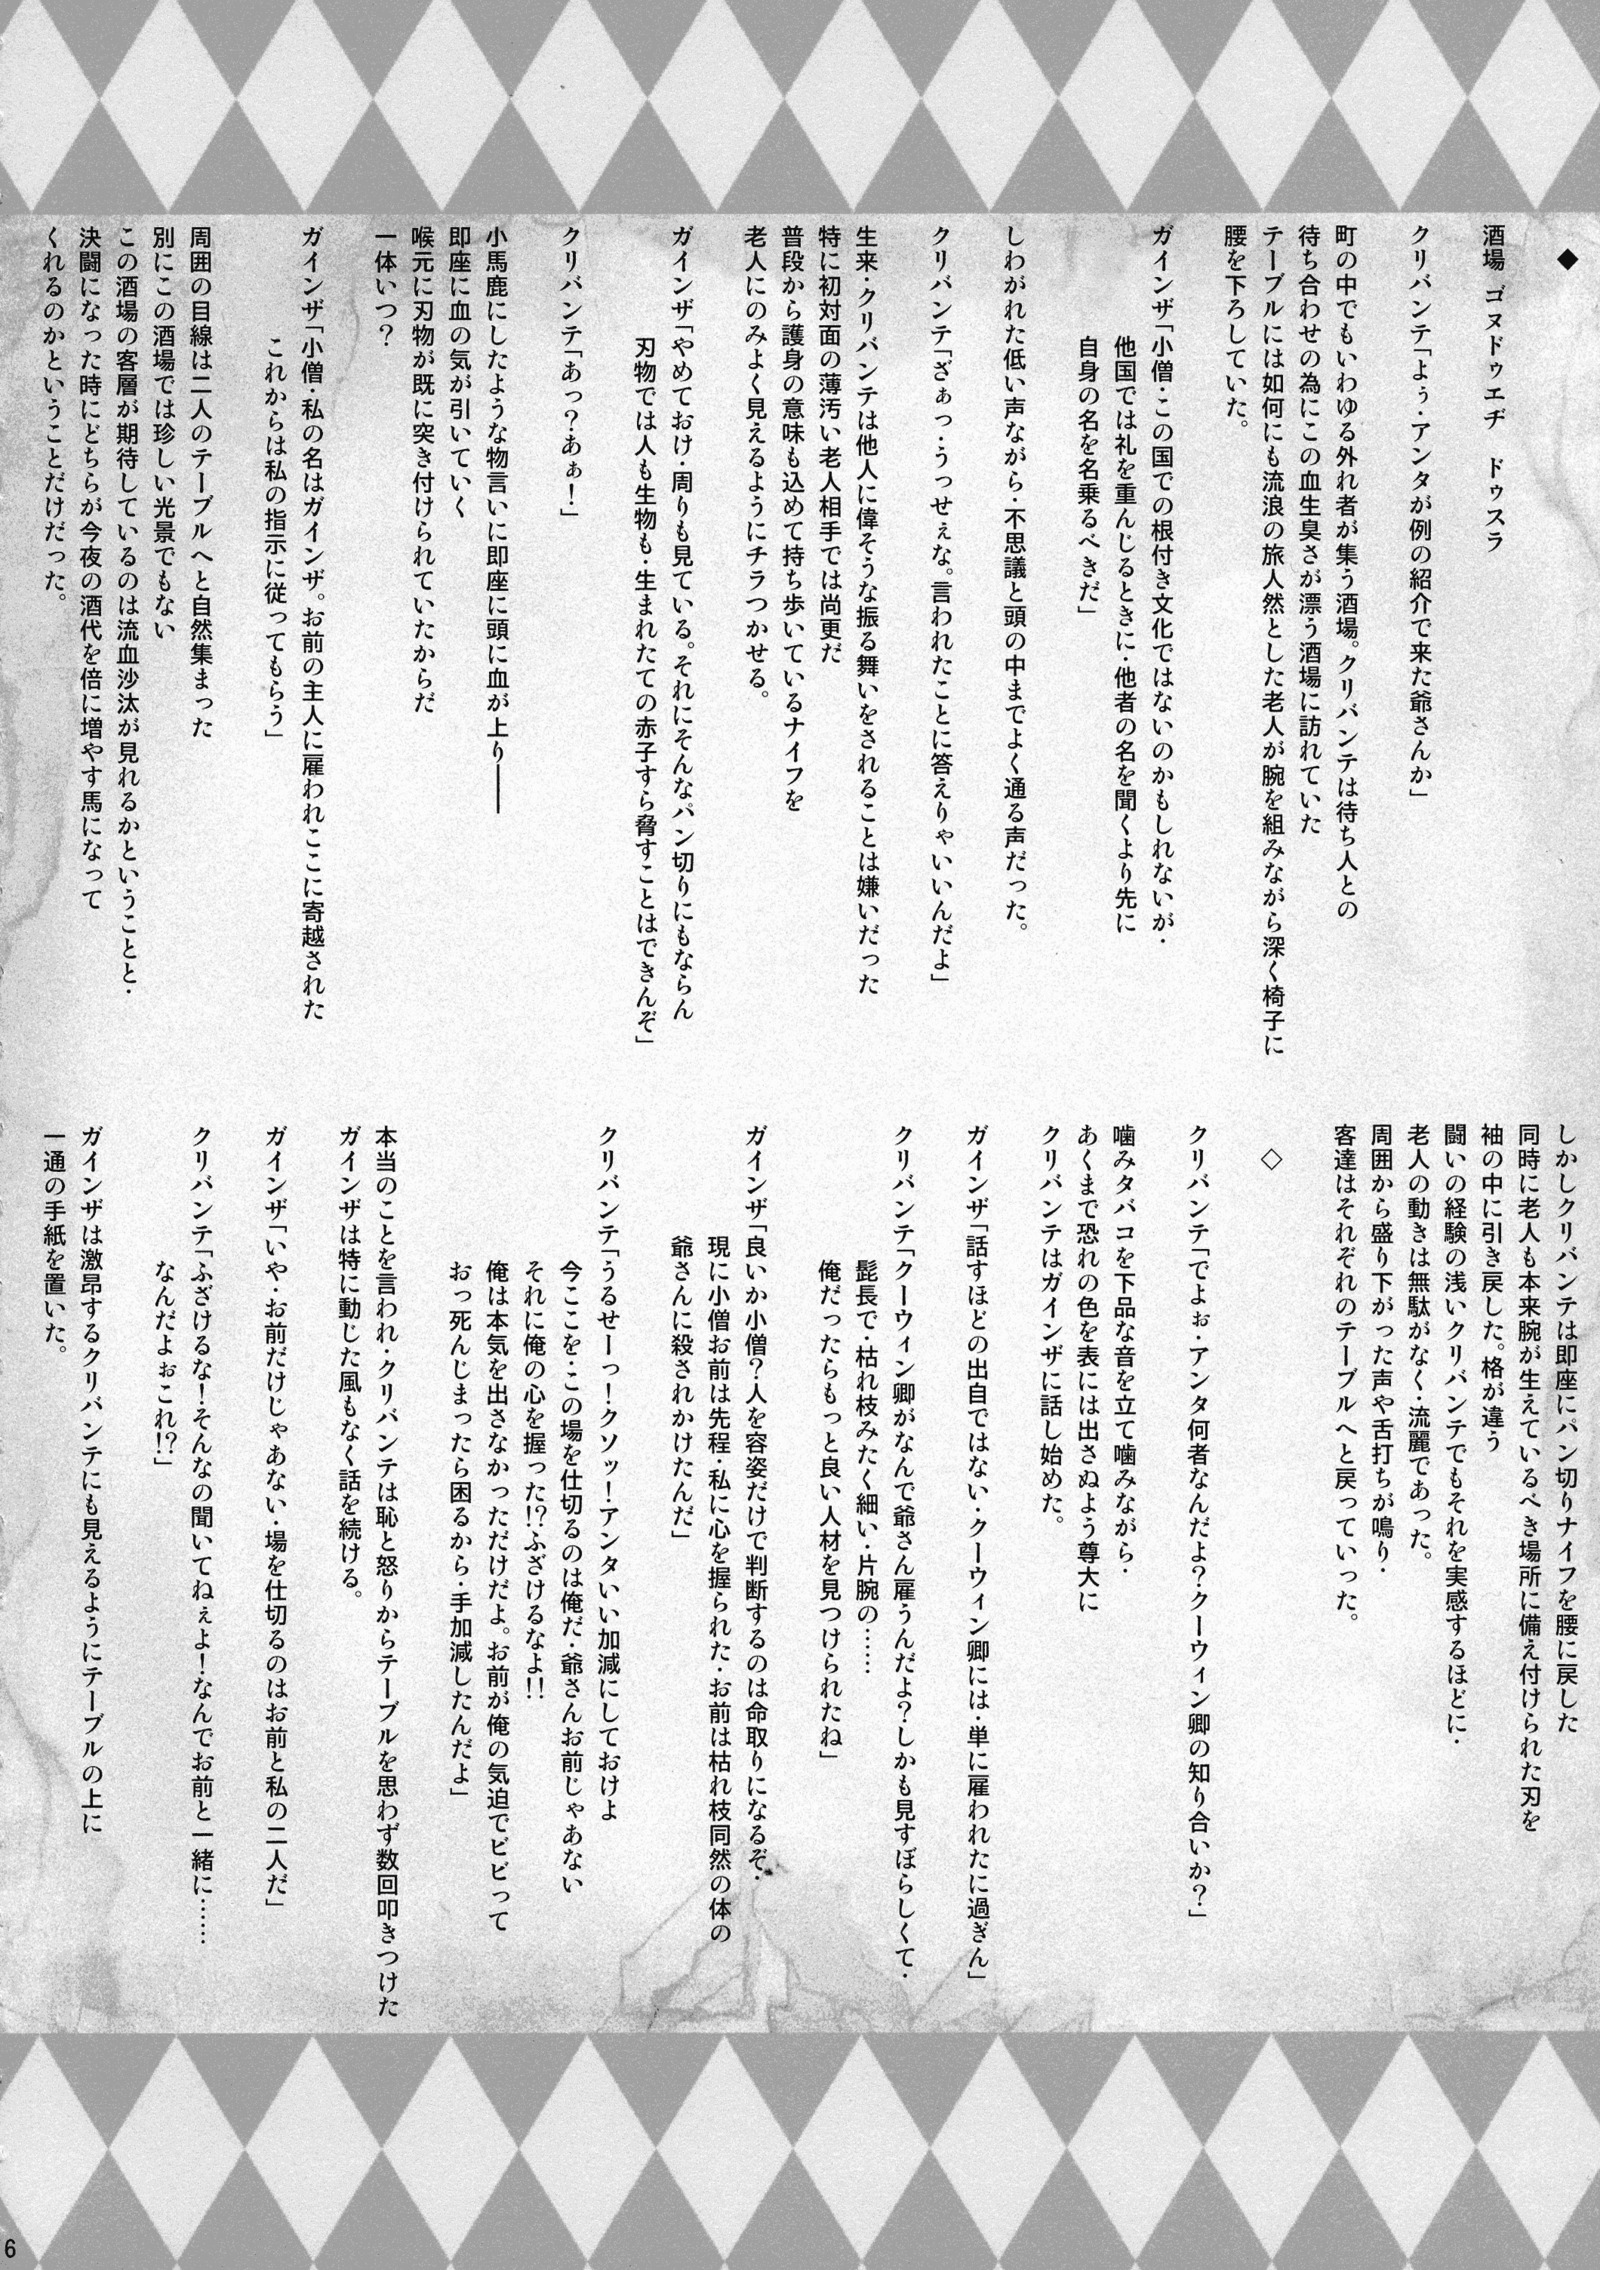 ◆
酒場 ゴヌドゥエヂ ドゥスラ
クリバンテ「よぅ・アンタが例の紹介で来た爺さんか」
町の中でもいわゆる外れ者が集う酒場。クリバンテは待ち人との
待ち合わせの為にこの血生臭さが漂う酒場に訪れていた
テーブルには如何にも流浪の旅人然とした老人が腕を組みながら深く椅子に
腰を下ろしていた。
ガインザ「小僧・この国での根付き文化ではないのかもしれないが・
他国では礼を重んじるときに・他者の名を聞くより先に
自身の名を名乗るべきだ」
しわがれた低い声ながら・不思議と頭の中までよく通る声だった。
クリバンテ「ざぁっ・うっせぇな。言われたことに答えりゃいいんだよ」
生来・クリバンテは他人に偉そうな振る舞いをされることは嫌いだった
特に初対面の薄汚い老人相手では尚更だ
普段から護身の意味も込めて持ち歩いているナイフを
老人にのみよく見えるようにチラつかせる。
ガインザ「やめておけ・周りも見ている。それにそんなパン切りにもならん
刃物では人も生物も・生まれたての赤子すら脅すことはできんぞ」
クリバンテ「あっ？あぁ！」
小馬鹿にしたような物言いに即座に頭に血が上り――
即座に血の気が引いていく
喉元に刃物が既に突き付けられていたからだ
一体いつ？
ガインザ「小僧・私の名はガインザ。お前の主人に雇われここに寄越された
これからは私の指示に従ってもらう」
周囲の目線は二人のテーブルへと自然集まった
別にこの酒場では珍しい光景でもない
この酒場の客層が期待しているのは流血沙汰が見れるかということと・
決闘になった時にどちらが今夜の酒代を倍に増やす馬になって
くれるのかということだけだった。
しかしクリバンテは即座にパン切りナイフを腰に戻した
同時に老人も本来腕が生えているべき場所に備え付けられた刃を
袖の中に引き戻した。格が違う
闘いの経験の浅いクリバンテでもそれを実感するほどに・
老人の動きは無駄がなく・流麗であった。
周囲から盛り下がった声や舌打ちが鳴り・
客達はそれぞれのテーブルへと戻っていった。
◇
クリバンテ「でよぉ・アンタ何者なんだよ？クーウィン卿の知り合いか？」
噛みタバコを下品な音を立て噛みながら・
あくまで恐れの色を表には出さぬよう尊大に
クリバンテはガインザに話し始めた。
ガインザ「話すほどの出自ではない・クーウィン卿には・単に雇われたに過ぎん」
クリバンテ「クーウィン卿がなんで爺さん雇うんだよ？しかも見すぼらしくて・
髭長で・枯れ枝みたく細い・片腕の……
俺だったらもっと良い人材を見つけられたね」
ガインザ「良いか小僧？人を容姿だけで判断するのは命取りになるぞ・
現に小僧お前は先程・私に心を握られた・お前は枯れ枝同然の体の
爺さんに殺されかけたんだ」
クリバンテ「うるせーっ！クソッ！アンタいい加減にしておけよ
今ここを・この場を仕切るのは俺だ・爺さんお前じゃあない
それに俺の心を握った!?ふざけるなよ!!
俺は本気を出さなかっただけだよ。お前が俺の気迫でビビって
おっ死んじまったら困るから・手加減したんだよ」
本当のことを言われ・クリバンテは恥と怒りからテーブルを思わず数回叩きつけた
ガインザは特に動じた風もなく話を続ける。
ガインザ「いや・お前だけじゃあない・場を仕切るのはお前と私の二人だ」
クリバンテ「ふざけるな！そんなの聞いてねぇよ！なんでお前と一緒に……
なんだよぉこれ!?」
ガインザは激昂するクリバンテにも見えるようにテーブルの上に
一通の手紙を置いた。
6